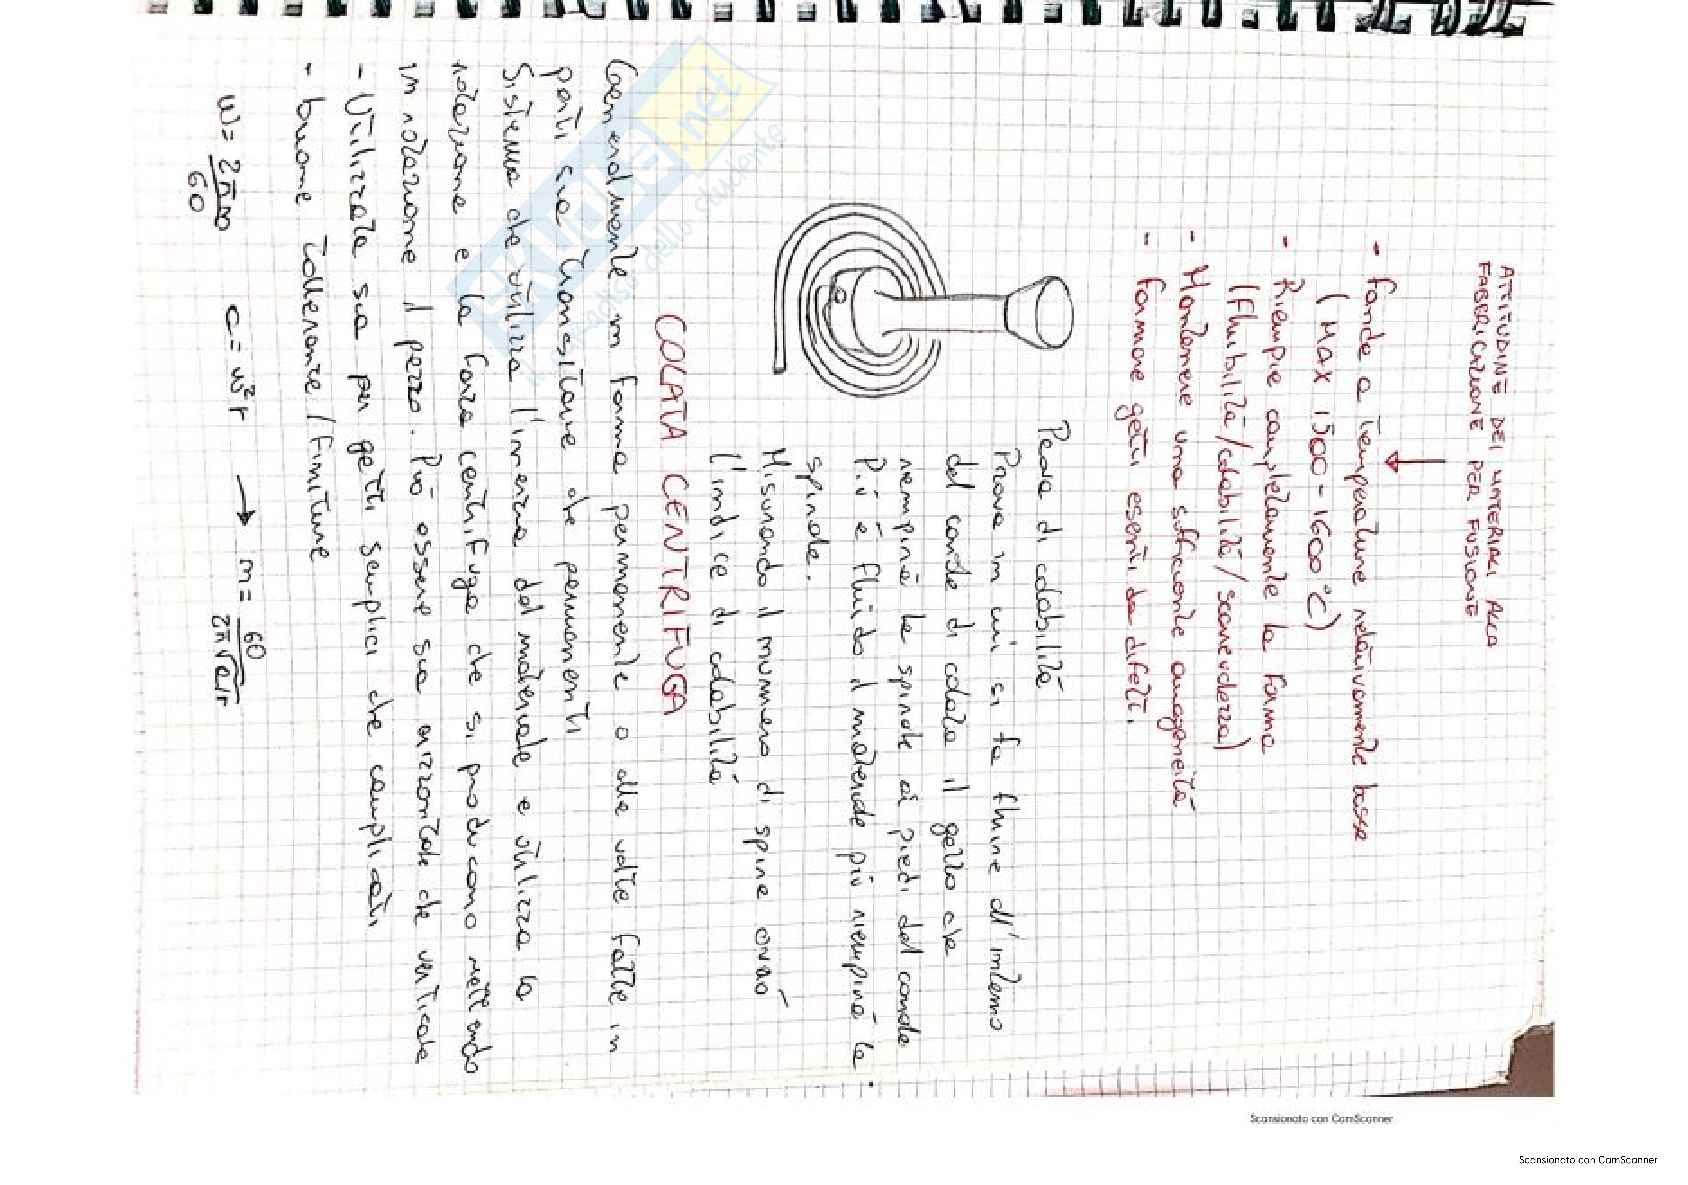 ATTITUDINE DEI MATERIALI ALLA
FABBRICAZIONE PER FUSIONE
- fonde a temperature relativamente basse
(MAX 1500-1600°C)
- Riempie completamente la forma
(fluibilità/colabilità/scorrevolezza)
- Mantenere una sufficiente omogeneità
- formare getti esenti da difetti.
Prova di colabilità
Prova in cui si fa fluire all'interno
del canale di colata il getto che
riempirà le spirale ai piedi del canale
Più è fluido il materiale più riempirà la
spirale.
Misurando il numero di spire avrò
l'indice di colabilità
COLATA CENTRIFUGA
Generalmente in forma permanente o alle volte fatte in
parti sia transitorie che permanenti
Sistema che utilizza l'inerzia del materiale e utilizza la
rotazione e la forza centrifuga che si producono mettendo
in rotazione il pezzo. Può essere sia orizzontale che verticale
- Utilizzata sia per getti semplici che complicati
- buone tolleranze/finiture
W = 2πn/60 a = w²r → n = 60/2π √a/r
skuola.net
dello studente
Scansionato con CamScanner
Scansionato con CamScanner